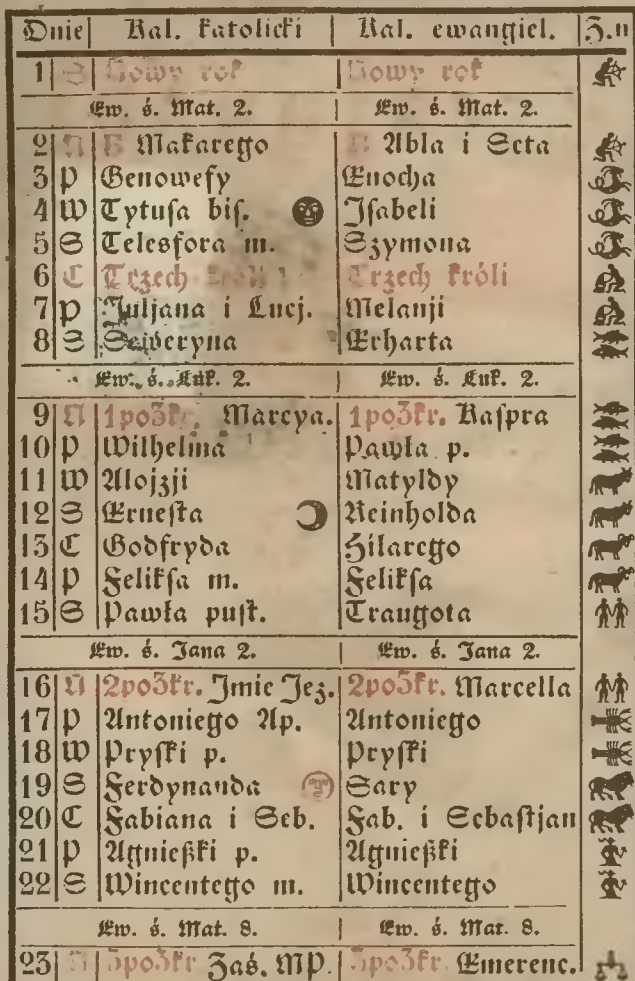 Dnie Kal. katolicki Kal. ewangiel. Z.n
1 S Nowy rok Nowy rok
Ew. ś. Mat. 2. Ew. ś. Mat. 2.
2 N B Makarego B Abla i Seta
3 P Genowefy Enocha
4 W Tytusa bis. Isabeli
5 S Telesfora m. Szymona
6 C Trzech króli Trzech króli
7 P Juljana i Lucj. Melanji
8 S Seweryna Erharta
Ew. ś. Luk. 2. Ew. ś. Luk. 2.
9 N 1po3kr. Marcya. 1po3kr. Kaspra
10 P Wilhelma Pawła p.
11 W Alojzji Matyldy
12 S Ernesta Reinholda
13 C Godfryda Hilarego
14 P Feliksa m. Feliksa
15 S Pawła pust. Traugota
Ew. ś. Jana 2. Ew. ś. Jana 2.
16 N 2po3kr. Imie Jez. 2po3kr. Marcella
17 P Antoniego Ap. Antoniego
18 W Pryski p. Pryski
19 S Ferdynanda Sary
20 C Fabiana i Seb. Fab. i Sebastjan
21 P Agnießki p. Agnießki
22 S Wincentego m. Wincentego
Ew. ś. Mat. 8. Ew. ś. Mat. 8.
23 N 3po3kr Zaś. MP. 3po3kr. Emerenc.